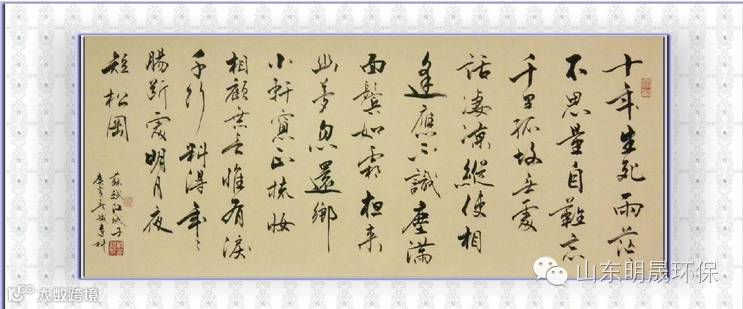 十年生死兩茫茫
不思量自難忘
千里孤坟無處
話凄涼縱使相
逢應不識塵滿
面鬢如霜夜来
幽夢忽還鄉
小軒窗正梳妝
相顧無言惟有淚
千行料得年々
腸斷處明月夜
短松岡
蘇軾江城子
山东明晟环保
大数跨境